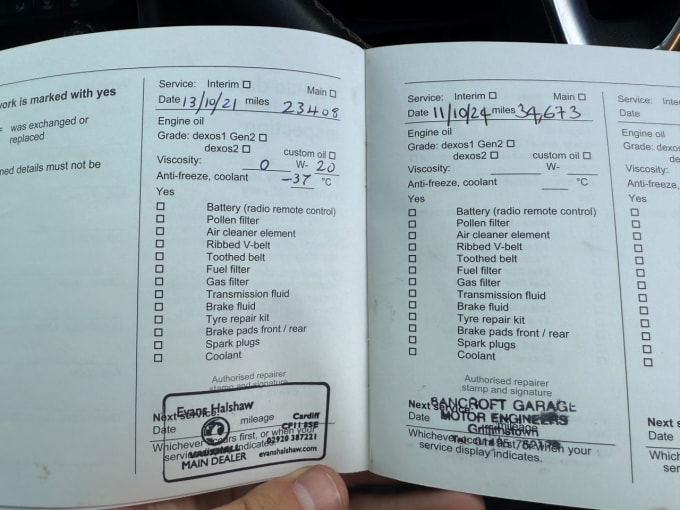 work is marked with yes
was exchanged or
replaced
details must not be
Service: Interim ☐ Main ☐
Date 13/10/21 miles 23408
Engine oil
Grade: dexos1 Gen2 ☐
dexos2 ☐ custom oil ☐
Viscosity: 0 W- 20
Anti-freeze, coolant -37 °C
Yes
☐ Battery (radio remote control)
☐ Pollen filter
☐ Air cleaner element
☐ Ribbed V-belt
☐ Toothed belt
☐ Fuel filter
☐ Gas filter
☐ Transmission fluid
☐ Brake fluid
☐ Tyre repair kit
☐ Brake pads front / rear
☐ Spark plugs
☐ Coolant
Authorised repairer
stamp and signature
Next service:
Date mileage
Whichever occurs first, or when your
service display indicates.
Evans Halshaw
Cardiff
CF11 8SE
02920 387221
VAUXHALL
MAIN DEALER evanshalshaw.com
Service: Interim ☐ Main ☐
Date 11/10/24 miles 34,673
Engine oil
Grade: dexos1 Gen2 ☐
dexos2 ☐ custom oil ☐
Viscosity: W-
Anti-freeze, coolant °C
Yes
☐ Battery (radio remote control)
☐ Pollen filter
☐ Air cleaner element
☐ Ribbed V-belt
☐ Toothed belt
☐ Fuel filter
☐ Gas filter
☐ Transmission fluid
☐ Brake fluid
☐ Tyre repair kit
☐ Brake pads front / rear
☐ Spark plugs
☐ Coolant
Authorised repairer
stamp and signature
Next service:
Date mileage
Whichever occurs first, or when your
service display indicates.
BANCROFT GARAGE
MOTOR ENGINEERS
Griffithstown
Tel: 01495
Service: Inte
Date
Engine oil
Grade: dexos
de
Viscosity:
Anti-freeze,
Yes
☐
☐
☐
☐
☐
☐
☐
☐
☐
☐
☐
☐
☐
Next s
Date
Which
ser